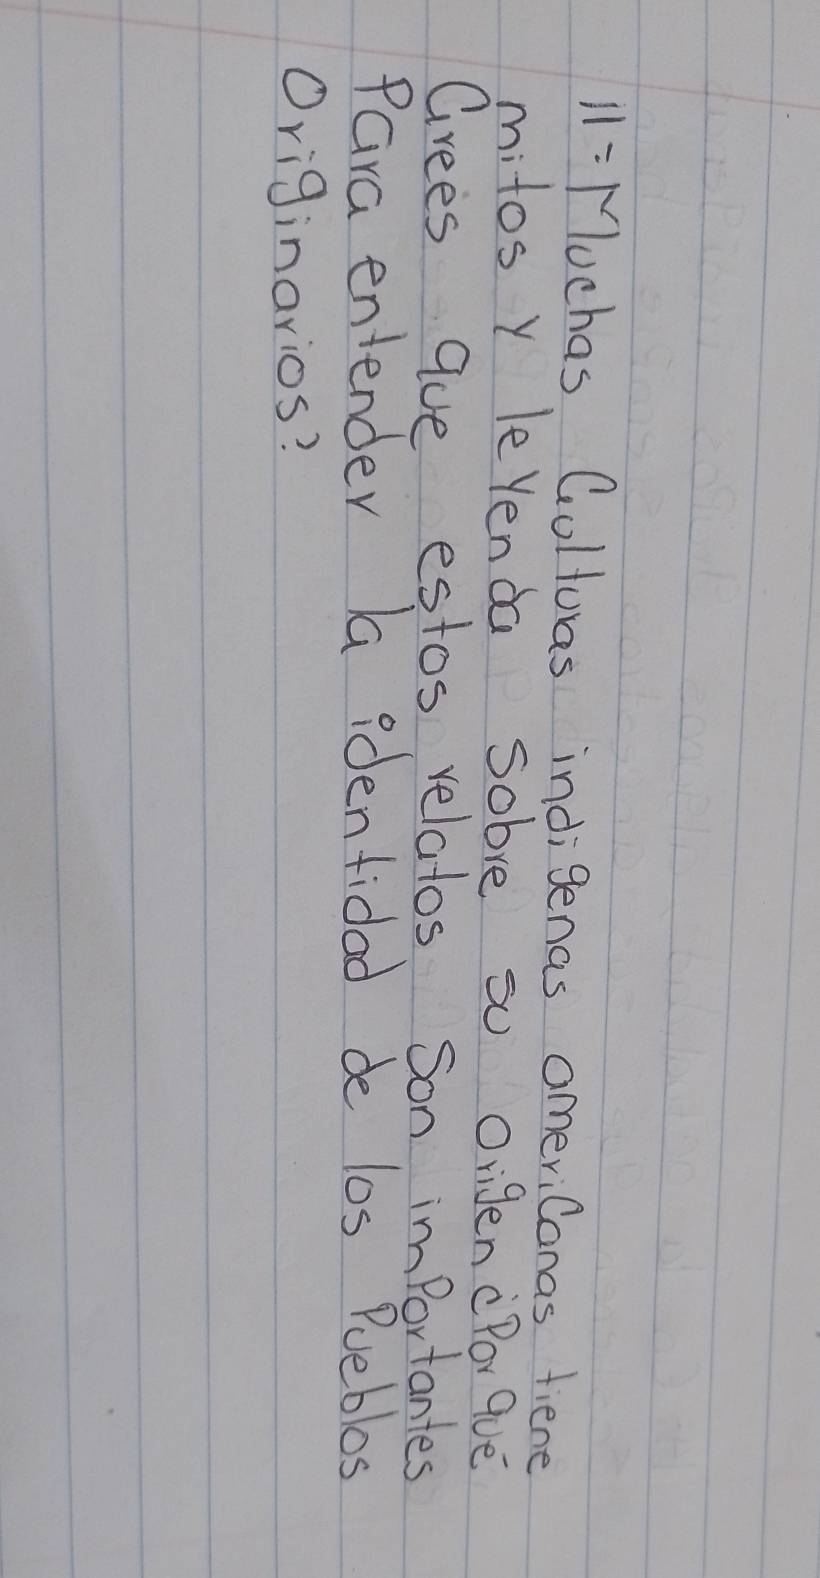 11=Muchas Culturas indigenas ameriCanas tiene
mitos y leyenda sobre su origen ¿Por qué
Crees que estos relatos Son imPortantes
Para entender la identidad de los Pueblos
Originarios?